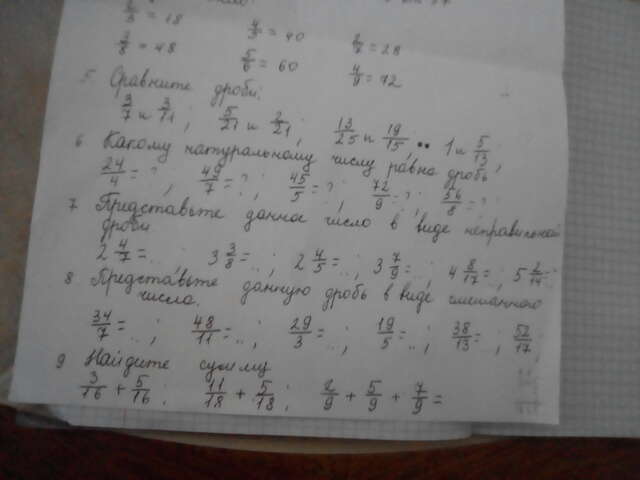 2/3 = 18 4/5 = 40 2/7 = 28
3/8 = 48 5/6 = 60 4/9 = 72
5. Сравните дроби:
3/7 и 3/11; 5/21 и 2/21; 13/25 и 19/15; 1 и 5/13;
6 Какому натуральному числу равна дробь
24/4 = ?; 49/7 = ?; 45/5 = ?; 72/9 = ?; 56/8 = ?
7 Представьте данное число в виде неправильной
дроби.
2 4/7 = ... 3 3/8 = ...; 2 4/5 = ...; 3 7/9 = ...; 4 8/17 = ; 5 2/14 = ;
8 Представьте данную дробь в виде смешанного
числа.
34/7 = ...; 48/11 = ...; 29/3 = ...; 19/5 = ...; 38/13 = ; 52/17
9 Найдите сумму
3/16 + 5/16; 11/18 + 5/18; 2/9 + 5/9 + 7/9 =